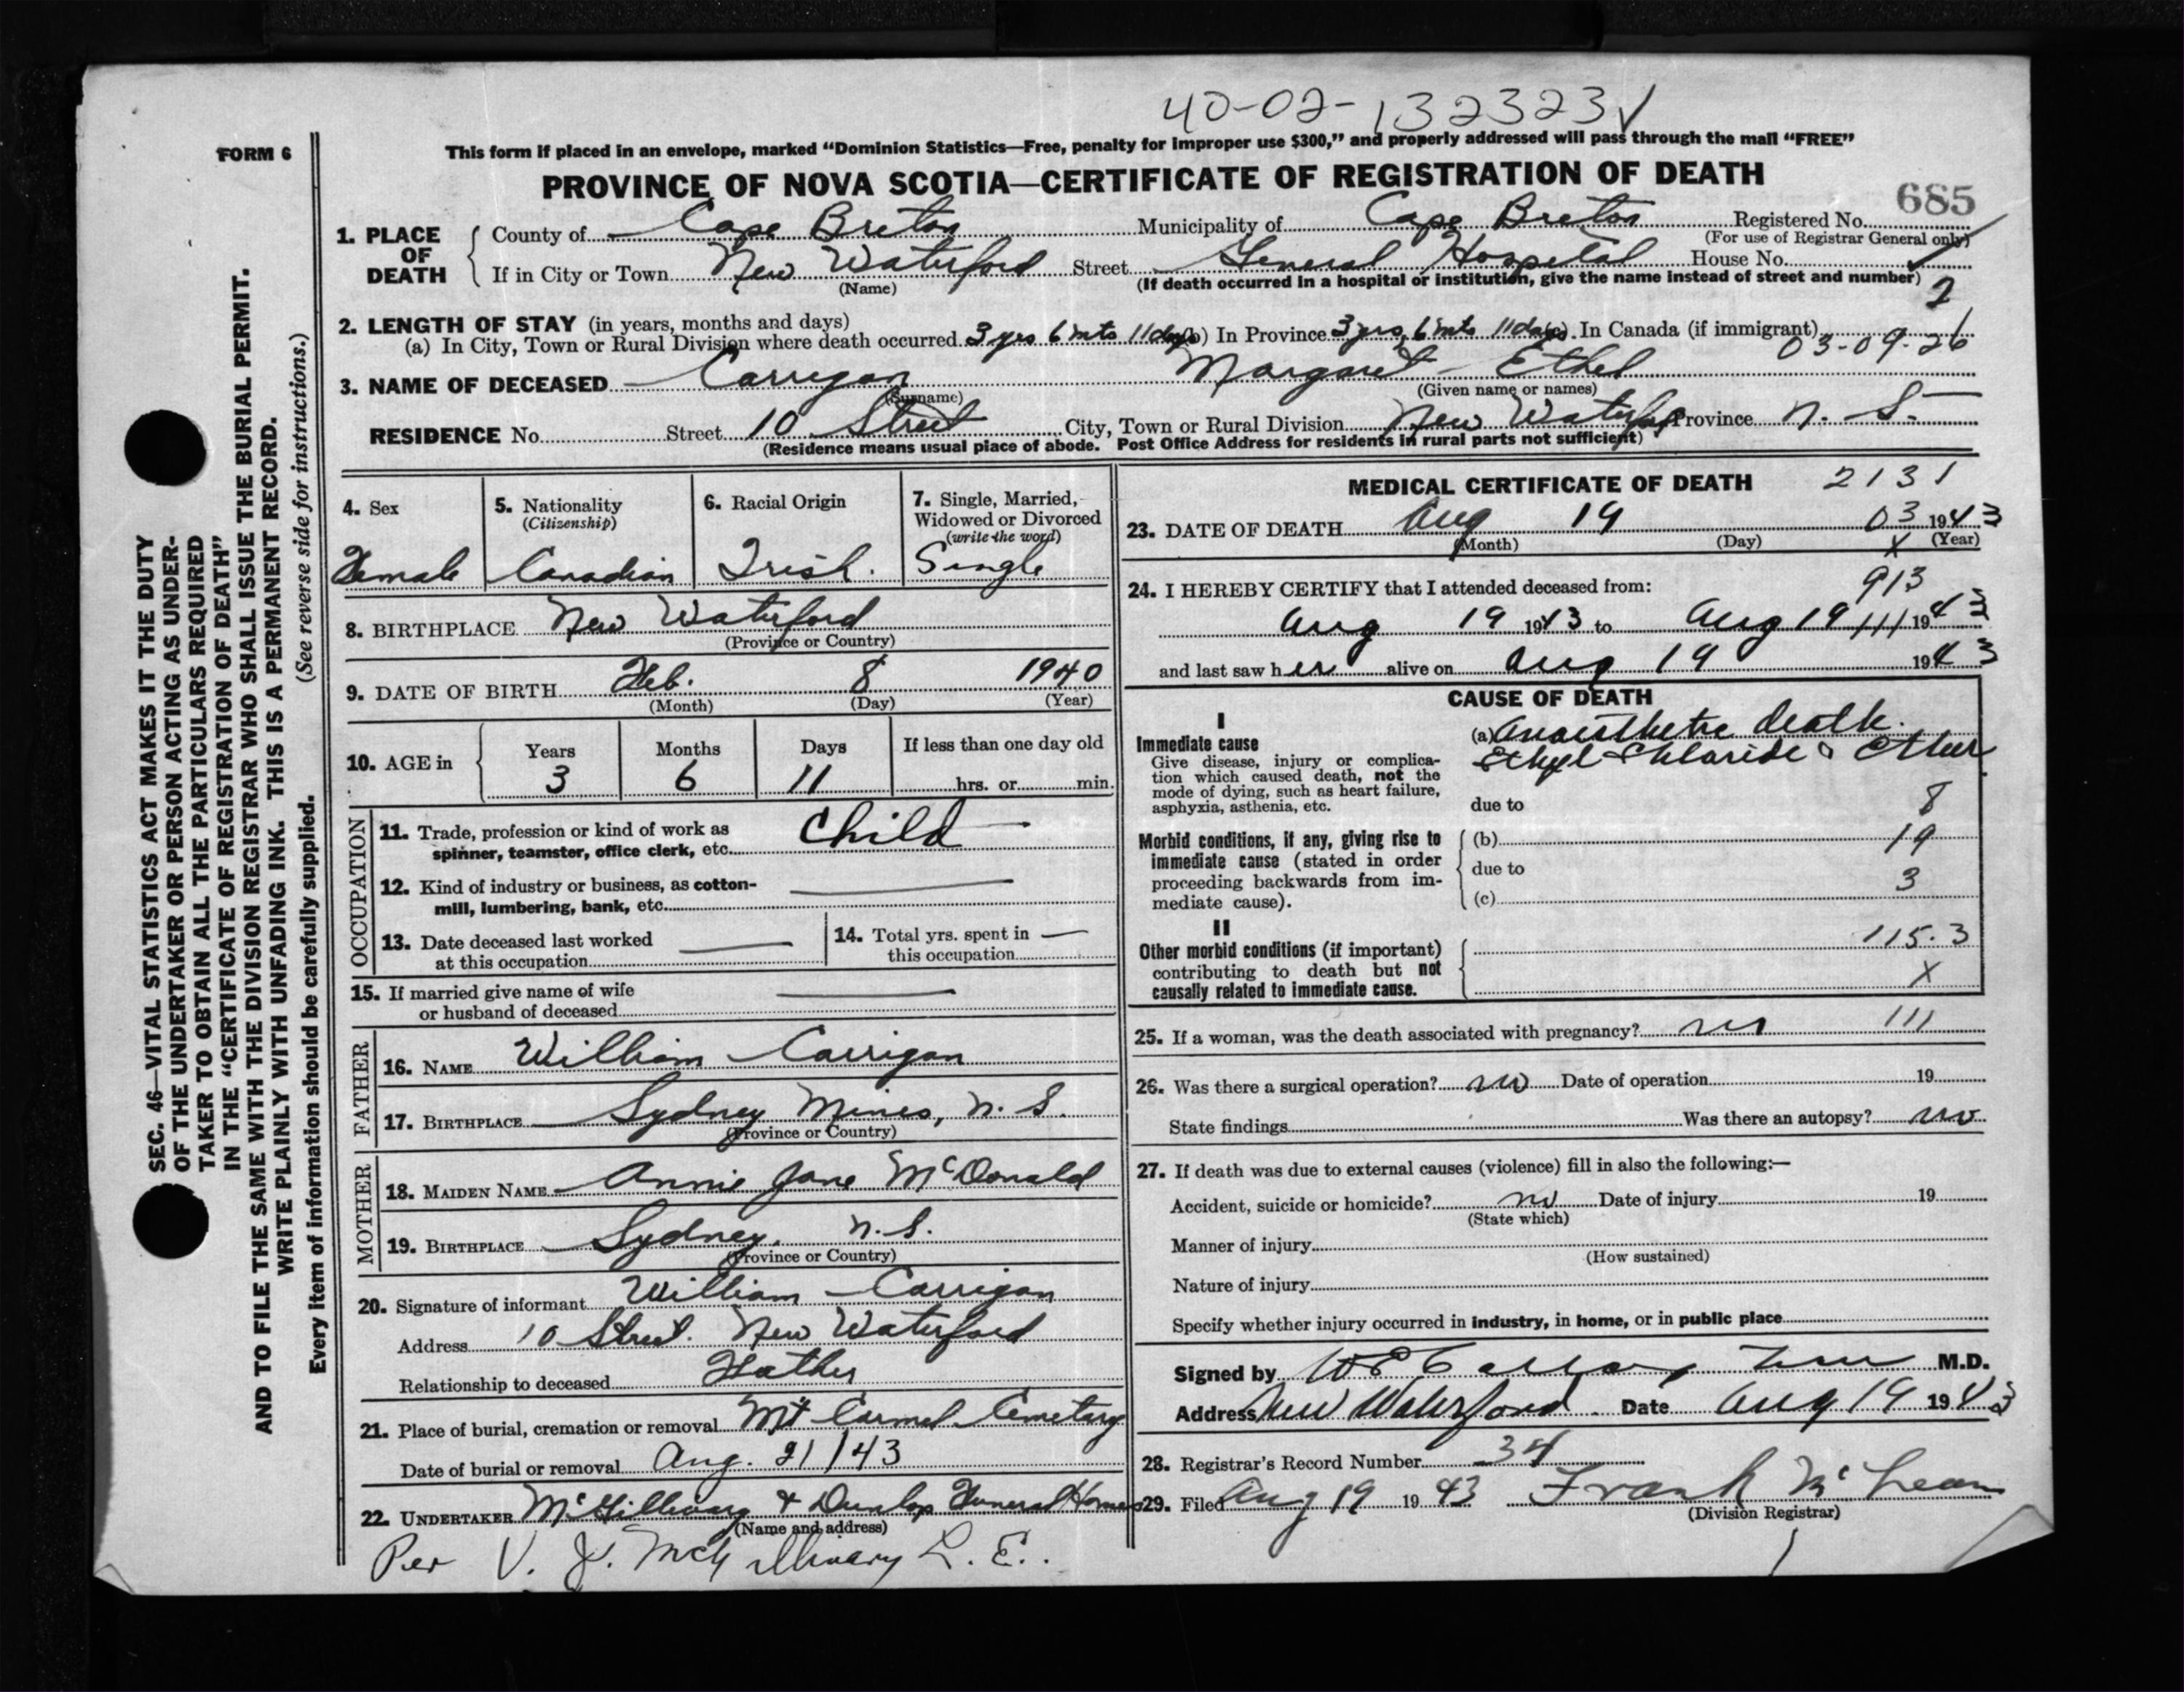 40-02-132323 ✓
FORM 6
This form if placed in an envelope, marked “Dominion Statistics—Free, penalty for improper use $300,” and properly addressed will pass through the mail “FREE”
PROVINCE OF NOVA SCOTIA—CERTIFICATE OF REGISTRATION OF DEATH
685
1. PLACE OF DEATH
County of Cape Breton Municipality of Cape Breton Registered No.
(For use of Registrar General only)
If in City or Town New Waterford Street General Hospital House No.
(Name) (If death occurred in a hospital or institution, give the name instead of street and number)
2
2. LENGTH OF STAY (in years, months and days)
(a) In City, Town or Rural Division where death occurred 3 yrs 6 mts 11 days (b) In Province 3 yrs, 6 mts 11 days (c) In Canada (if immigrant)
03-09-26
3. NAME OF DECEASED Carrigan Margaret Ethel
(Surname) (Given name or names)
RESIDENCE No. Street 10 Street City, Town or Rural Division New Waterford Province N. S.
(Residence means usual place of abode. Post Office Address for residents in rural parts not sufficient)
4. Sex
Female
5. Nationality
(Citizenship)
Canadian
6. Racial Origin
Irish.
7. Single, Married,
Widowed or Divorced
(write the word)
Single
8. BIRTHPLACE New Waterford
(Province or Country)
9. DATE OF BIRTH Feb. 8 1940
(Month) (Day) (Year)
10. AGE in
Years Months Days If less than one day old
3 6 11 hrs. or min.
OCCUPATION
11. Trade, profession or kind of work as
spinner, teamster, office clerk, etc. Child
12. Kind of industry or business, as cotton-
mill, lumbering, bank, etc.
13. Date deceased last worked
at this occupation
14. Total yrs. spent in
this occupation
15. If married give name of wife
or husband of deceased
FATHER
16. NAME William Carrigan
17. BIRTHPLACE Sydney Mines, N. S.
(Province or Country)
MOTHER
18. MAIDEN NAME Annie Jane McDonald
19. BIRTHPLACE Sydney, N. S.
(Province or Country)
20. Signature of informant William Carrigan
Address 10 Street. New Waterford
Relationship to deceased Father
21. Place of burial, cremation or removal Mt Carmel Cemetery
Date of burial or removal Aug. 21/43
22. UNDERTAKER McGillivary & Dunlop Funeral Homes
(Name and address)
Per V. J. McGillivary L. E.
MEDICAL CERTIFICATE OF DEATH 2131
23. DATE OF DEATH Aug 19 03 1943
(Month) (Day) X (Year)
24. I HEREBY CERTIFY that I attended deceased from:
913
Aug 19 1943 to Aug 19 111 1943
and last saw her alive on Aug 19 1943
CAUSE OF DEATH
I
Immediate cause
Give disease, injury or complica-
tion which caused death, not the
mode of dying, such as heart failure,
asphyxia, asthenia, etc.
(a) Anaesthetic death.
Ethyl Chloride & Ether
due to
8
Morbid conditions, if any, giving rise to
immediate cause (stated in order
proceeding backwards from im-
mediate cause).
(b) 19
due to
3
(c)
II
Other morbid conditions (if important)
contributing to death but not
causally related to immediate cause.
115.3
X
25. If a woman, was the death associated with pregnancy? no 111
26. Was there a surgical operation? no Date of operation 19
State findings Was there an autopsy? no
27. If death was due to external causes (violence) fill in also the following:—
Accident, suicide or homicide? no Date of injury 19
(State which)
Manner of injury
(How sustained)
Nature of injury
Specify whether injury occurred in industry, in home, or in public place
Signed by M.D.
Address New Waterford. Date Aug 19 1943
28. Registrar's Record Number 34
29. Filed Aug 19 1943 Frank McLean
(Division Registrar)
SEC. 46—VITAL STATISTICS ACT MAKES IT THE DUTY
OF THE UNDERTAKER OR PERSON ACTING AS UNDER-
TAKER TO OBTAIN ALL THE PARTICULARS REQUIRED
IN THE “CERTIFICATE OF REGISTRATION OF DEATH”
AND TO FILE THE SAME WITH THE DIVISION REGISTRAR WHO SHALL ISSUE THE BURIAL PERMIT.
WRITE PLAINLY WITH UNFADING INK. THIS IS A PERMANENT RECORD.
(See reverse side for instructions.)
Every item of information should be carefully supplied.